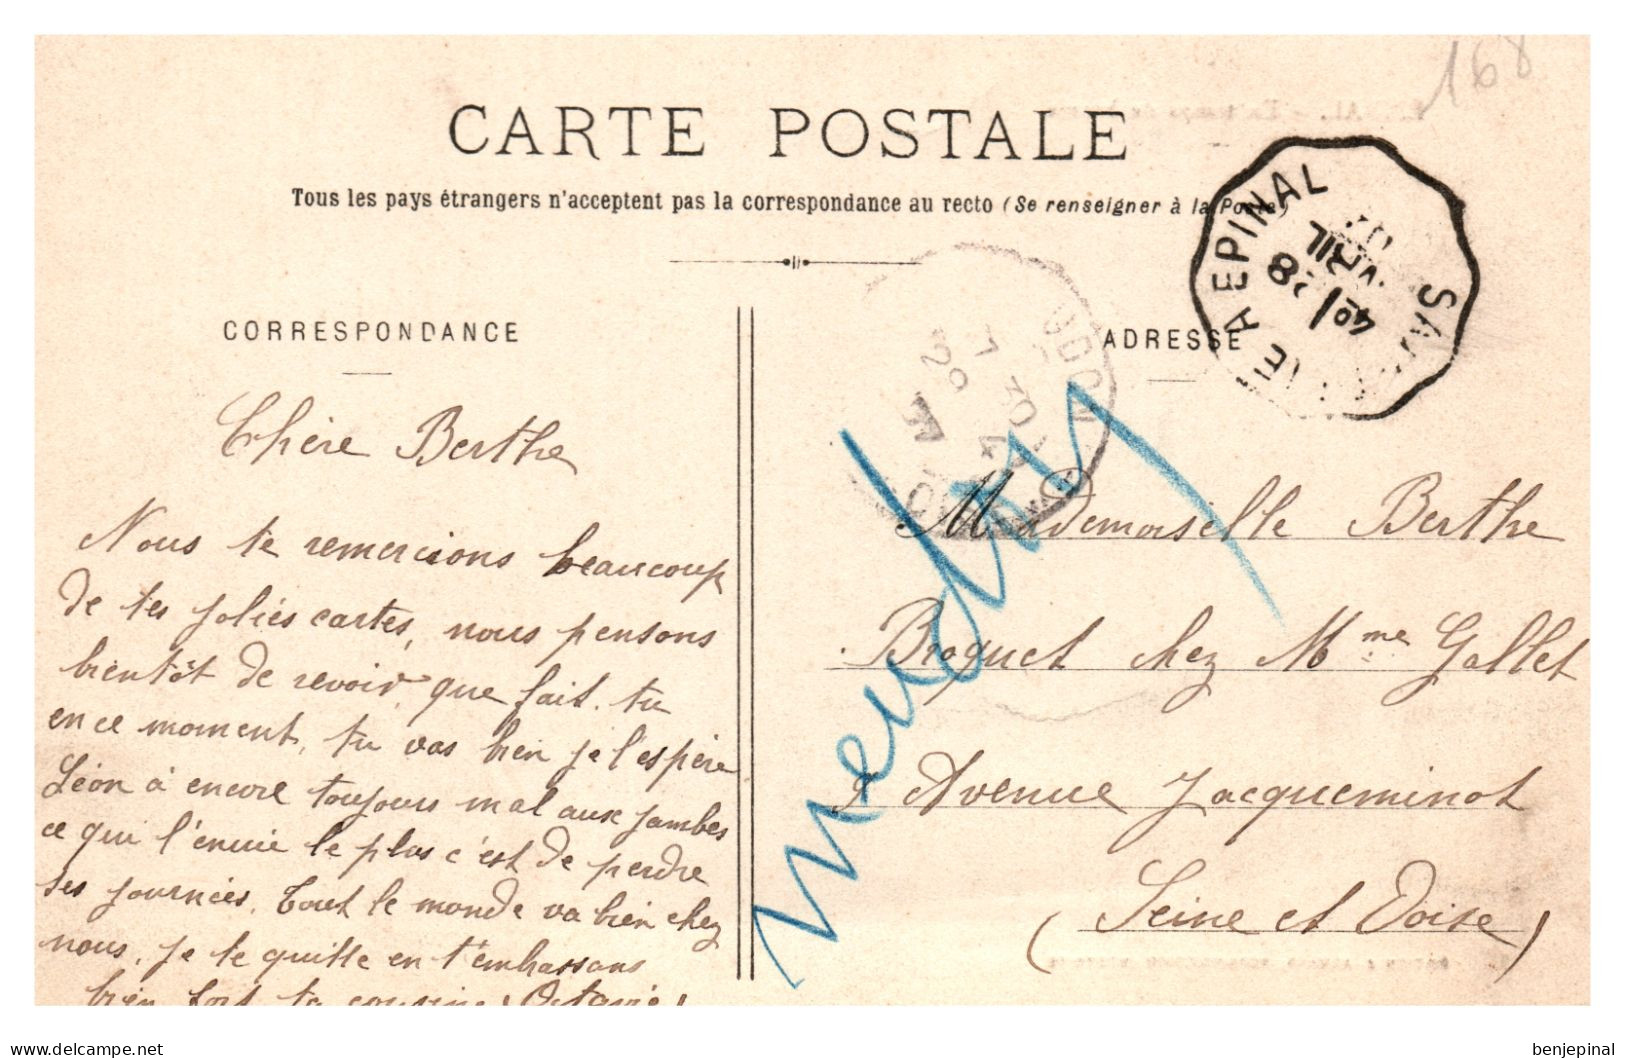 168
CARTE POSTALE
Tous les pays étrangers n'acceptent pas la correspondance au recto (Se renseigner à la Poste)
EPINAL
8
AVRIL
CORRESPONDANCE
ADRESSE
Chère Berthe
Nous te remercions beaucoup
de tes jolies cartes, nous pensons
bientôt de revoir que fait. tu
en ce moment, tu vas bien je l'espère
Léon à encore toujours mal aux jambes
ce qui l'enuie le plus c'est de perdre
ses journées. Tout le monde va bien chez
nous. je te quitte en t'embrassans
bien fort ta cousine Octavie
Mademoiselle Berthe
Broquet chez Mme Gallet
Avenue Jacqueminot
Meudon
(Seine et Oise)
www.delcampe.net
benjepinal